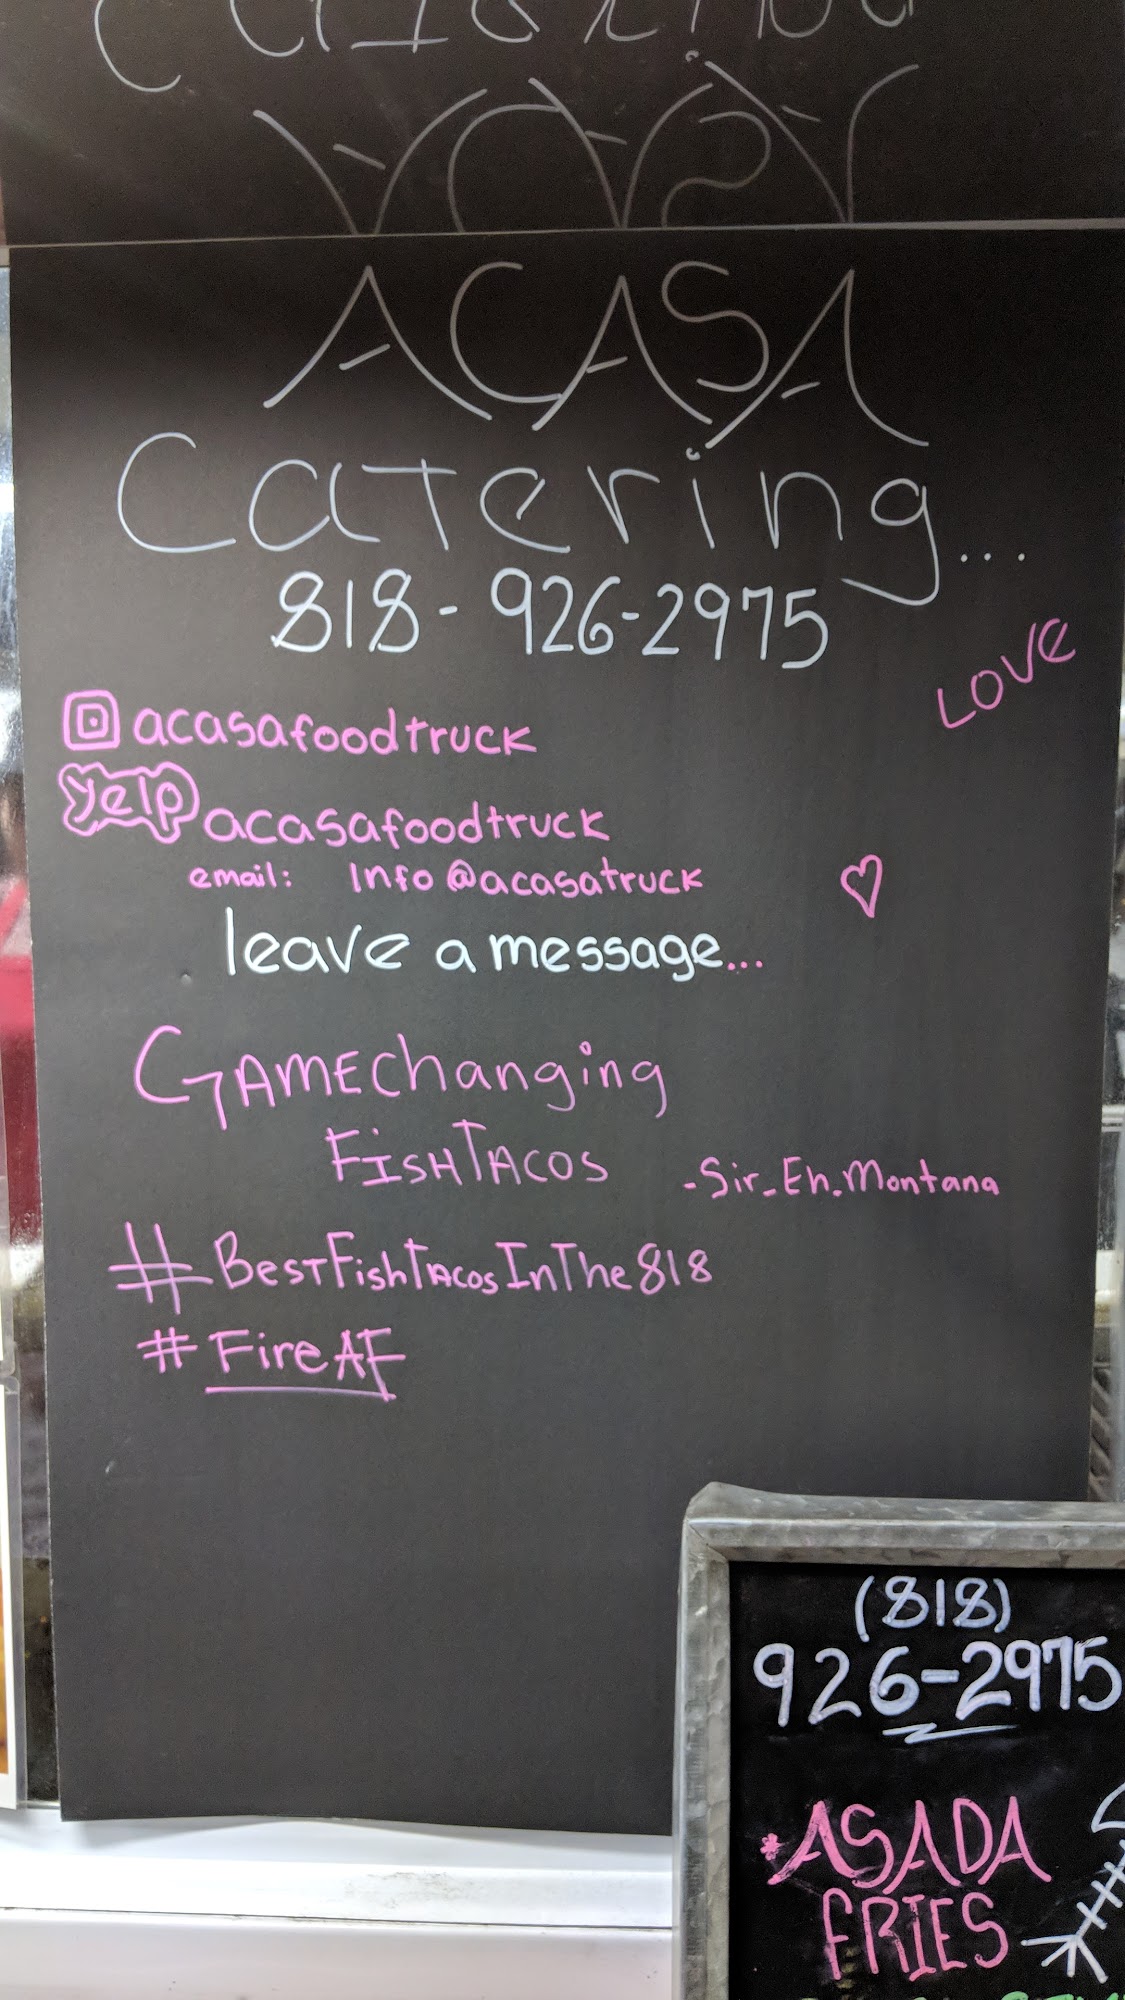 ACASA
Catering...
818-926-2975
LOVE
acasafoodtruck
yelp acasafoodtruck
email: Info@acasatruck
leave a message...
GAMEchanging
FISHTACOS -Sir_Eh.Montana
#BestFishTacosInThe818
#FireAF
(818)
926-2975
*ASADA
FRIES